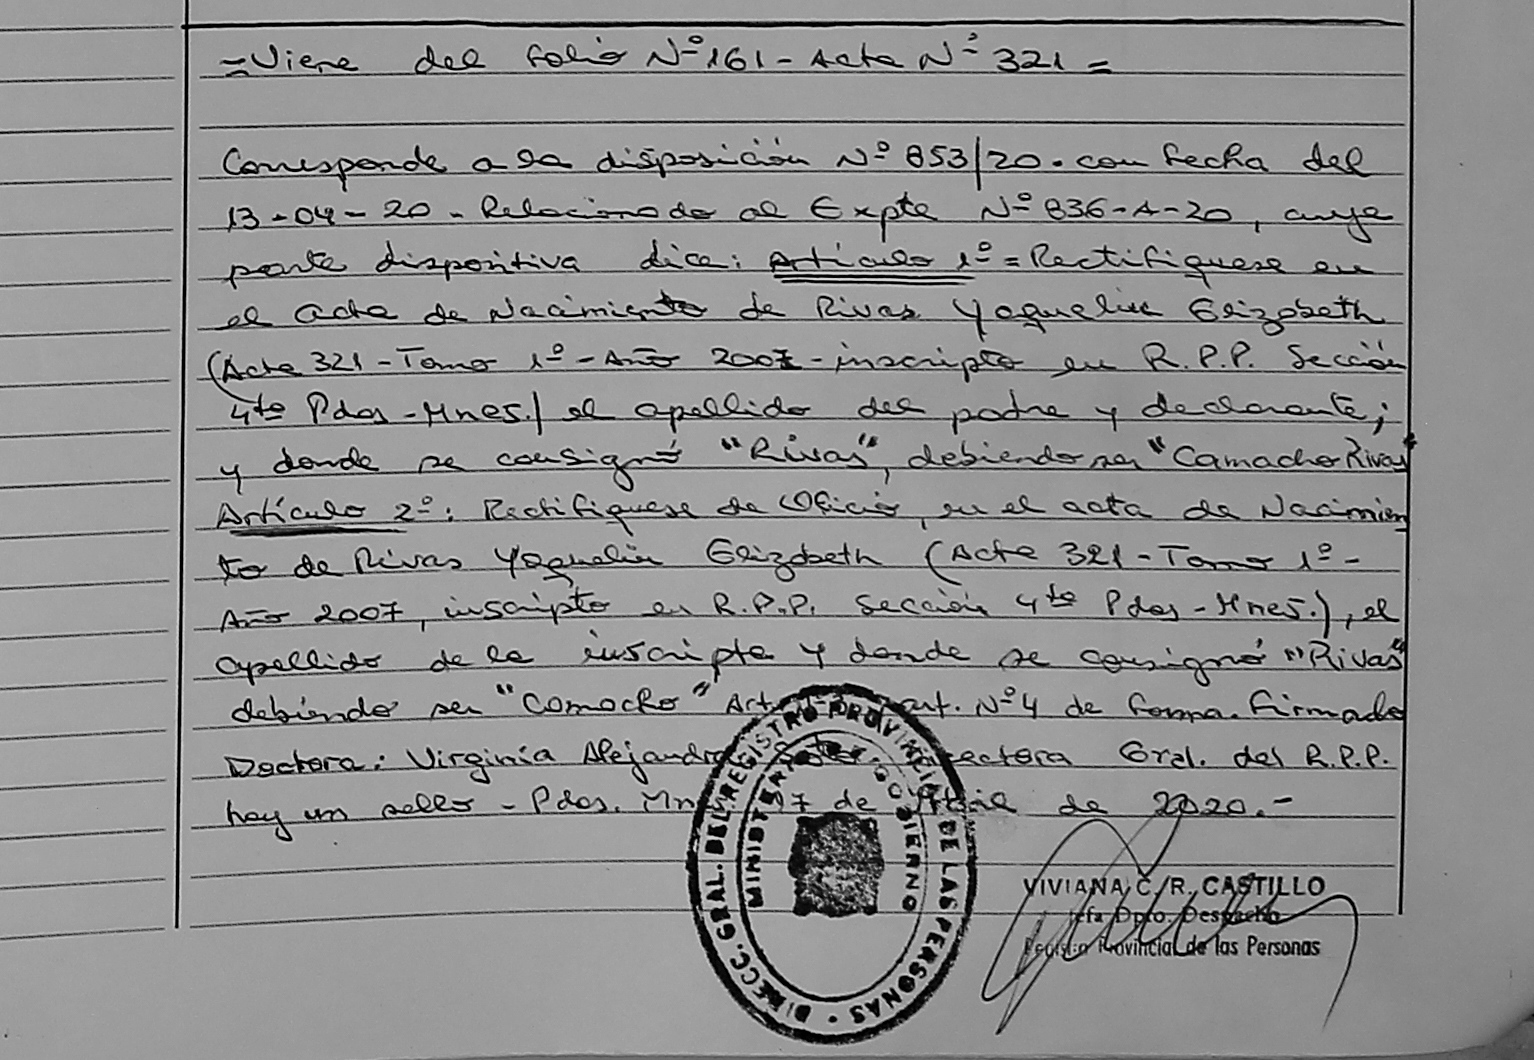 =Viene del folio Nº 161 - Acta Nº 321 =
Corresponde a la disposición Nº 853/20. con fecha del
13-04-20. Relacionado al Expte Nº 836-A-20, cuya
parte dispositiva dice: Artículo 1º = Rectifiquese en
el acta de Nacimiento de Rivas Yaquelin Elizabeth
(Acta 321 - Tomo 1º - Año 2007 - inscripto en R.P.P. Sección
4ta Pdas - Mnes.) el apellido del padre y declarante;
y donde se consignó "Rivas", debiendo ser "Camacho Rivas"
Artículo 2º: Rectifiquese de Oficio, en el acta de Nacimien
to de Rivas Yaquelin Elizabeth (Acta 321 - Tomo 1º -
Año 2007, inscripto en R.P.P. Sección 4ta Pdas - Mnes.), el
apellido de la inscripta y donde se consignó "Rivas"
debiendo ser "Camacho" Art. art. Nº 4 de forma. Firmado
Doctora: Virginia Alejandra Directora Gral. del R.P.P.
hay un sello - Pdas. Mnes 17 de Abril de 2020.-
DIRECC. GRAL. DEL REGISTRO PROVINCIAL DE LAS PERSONAS
MINISTERIO DE GOBIERNO
VIVIANA C. R. CASTILLO
Jefa Dpto. Despacho
Registro Provincial de las Personas